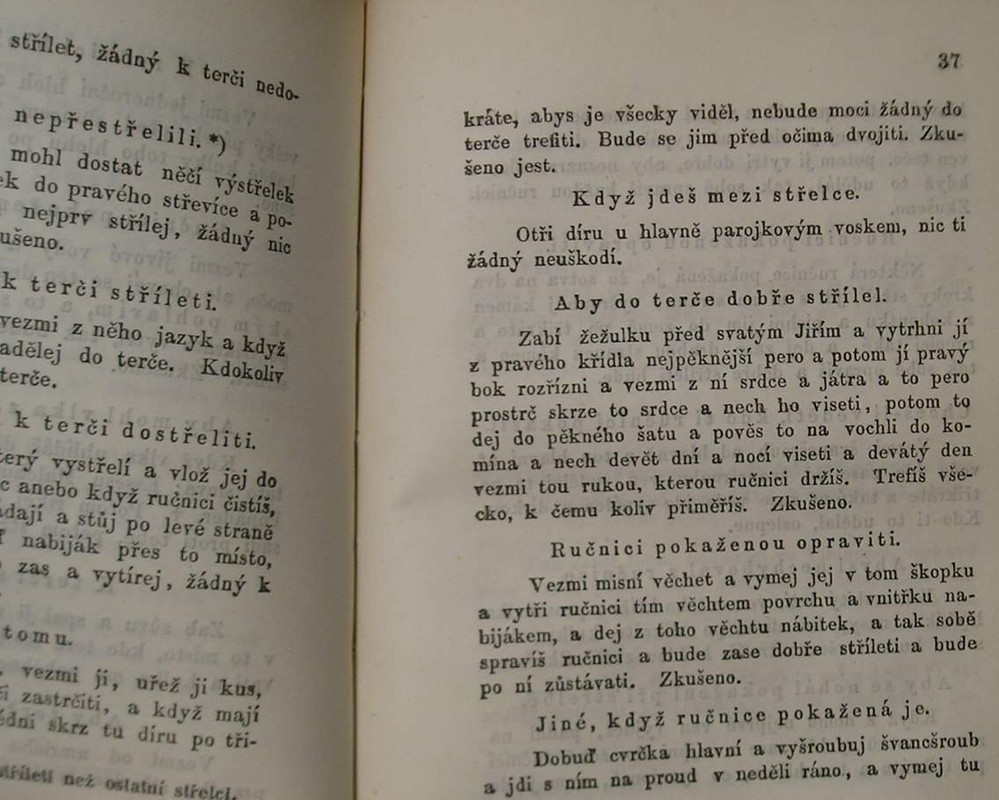 střílet, žádný k terči nedo-
nepřestřelili. *)
mohl dostat něčí výstřelek
do pravého střevíce a po-
nejprv střílej, žádný nic
k terči stříleti.
vezmi z něho jazyk a když
do terče. Kdokoliv
terče.
k terči dostřeliti.
vystřelí a vlož jej do
anebo když ručnici čistíš,
a stůj po levé straně
nabiják přes to místo,
zas a vytírej, žádný k
tomu.
vezmi ji, uřež ji kus,
zastrčiti, a když mají
skrz tu díru po tři-
stříleti než ostatní střelci.
37
kráte, abys je všecky viděl, nebude moci žádný do
terče trefiti. Bude se jim před očima dvojiti. Zku-
šeno jest.
Když jdeš mezi střelce.
Otři díru u hlavně parojkovým voskem, nic ti
žádný neuškodí.
Aby do terče dobře střílel.
Zabí žežulku před svatým Jiřím a vytrhni jí
z pravého křídla nejpěknější pero a potom jí pravý
bok rozřízni a vezmi z ní srdce a játra a to pero
prostrč skrze to srdce a nech ho viseti, potom to
dej do pěkného šatu a pověs to na vochli do ko-
mína a nech devět dní a nocí viseti a devátý den
vezmi tou rukou, kterou ručnici držíš. Trefíš vše-
cko, k čemu koliv přiměříš. Zkušeno.
Ručnici pokaženou opraviti.
Vezmi misní věchet a vymej jej v tom škopku
a vytři ručnici tím věchtem povrchu a vnitřku na-
bijákem, a dej z toho věchtu nábitek, a tak sobě
spravíš ručnici a bude zase dobře stříleti a bude
po ní zůstávati. Zkušeno.
Jiné, když ručnice pokažená je.
Dobuď cvrčka hlavní a vyšroubuj švancšroub
a jdi s ním na proud v neděli ráno, a vymej tu